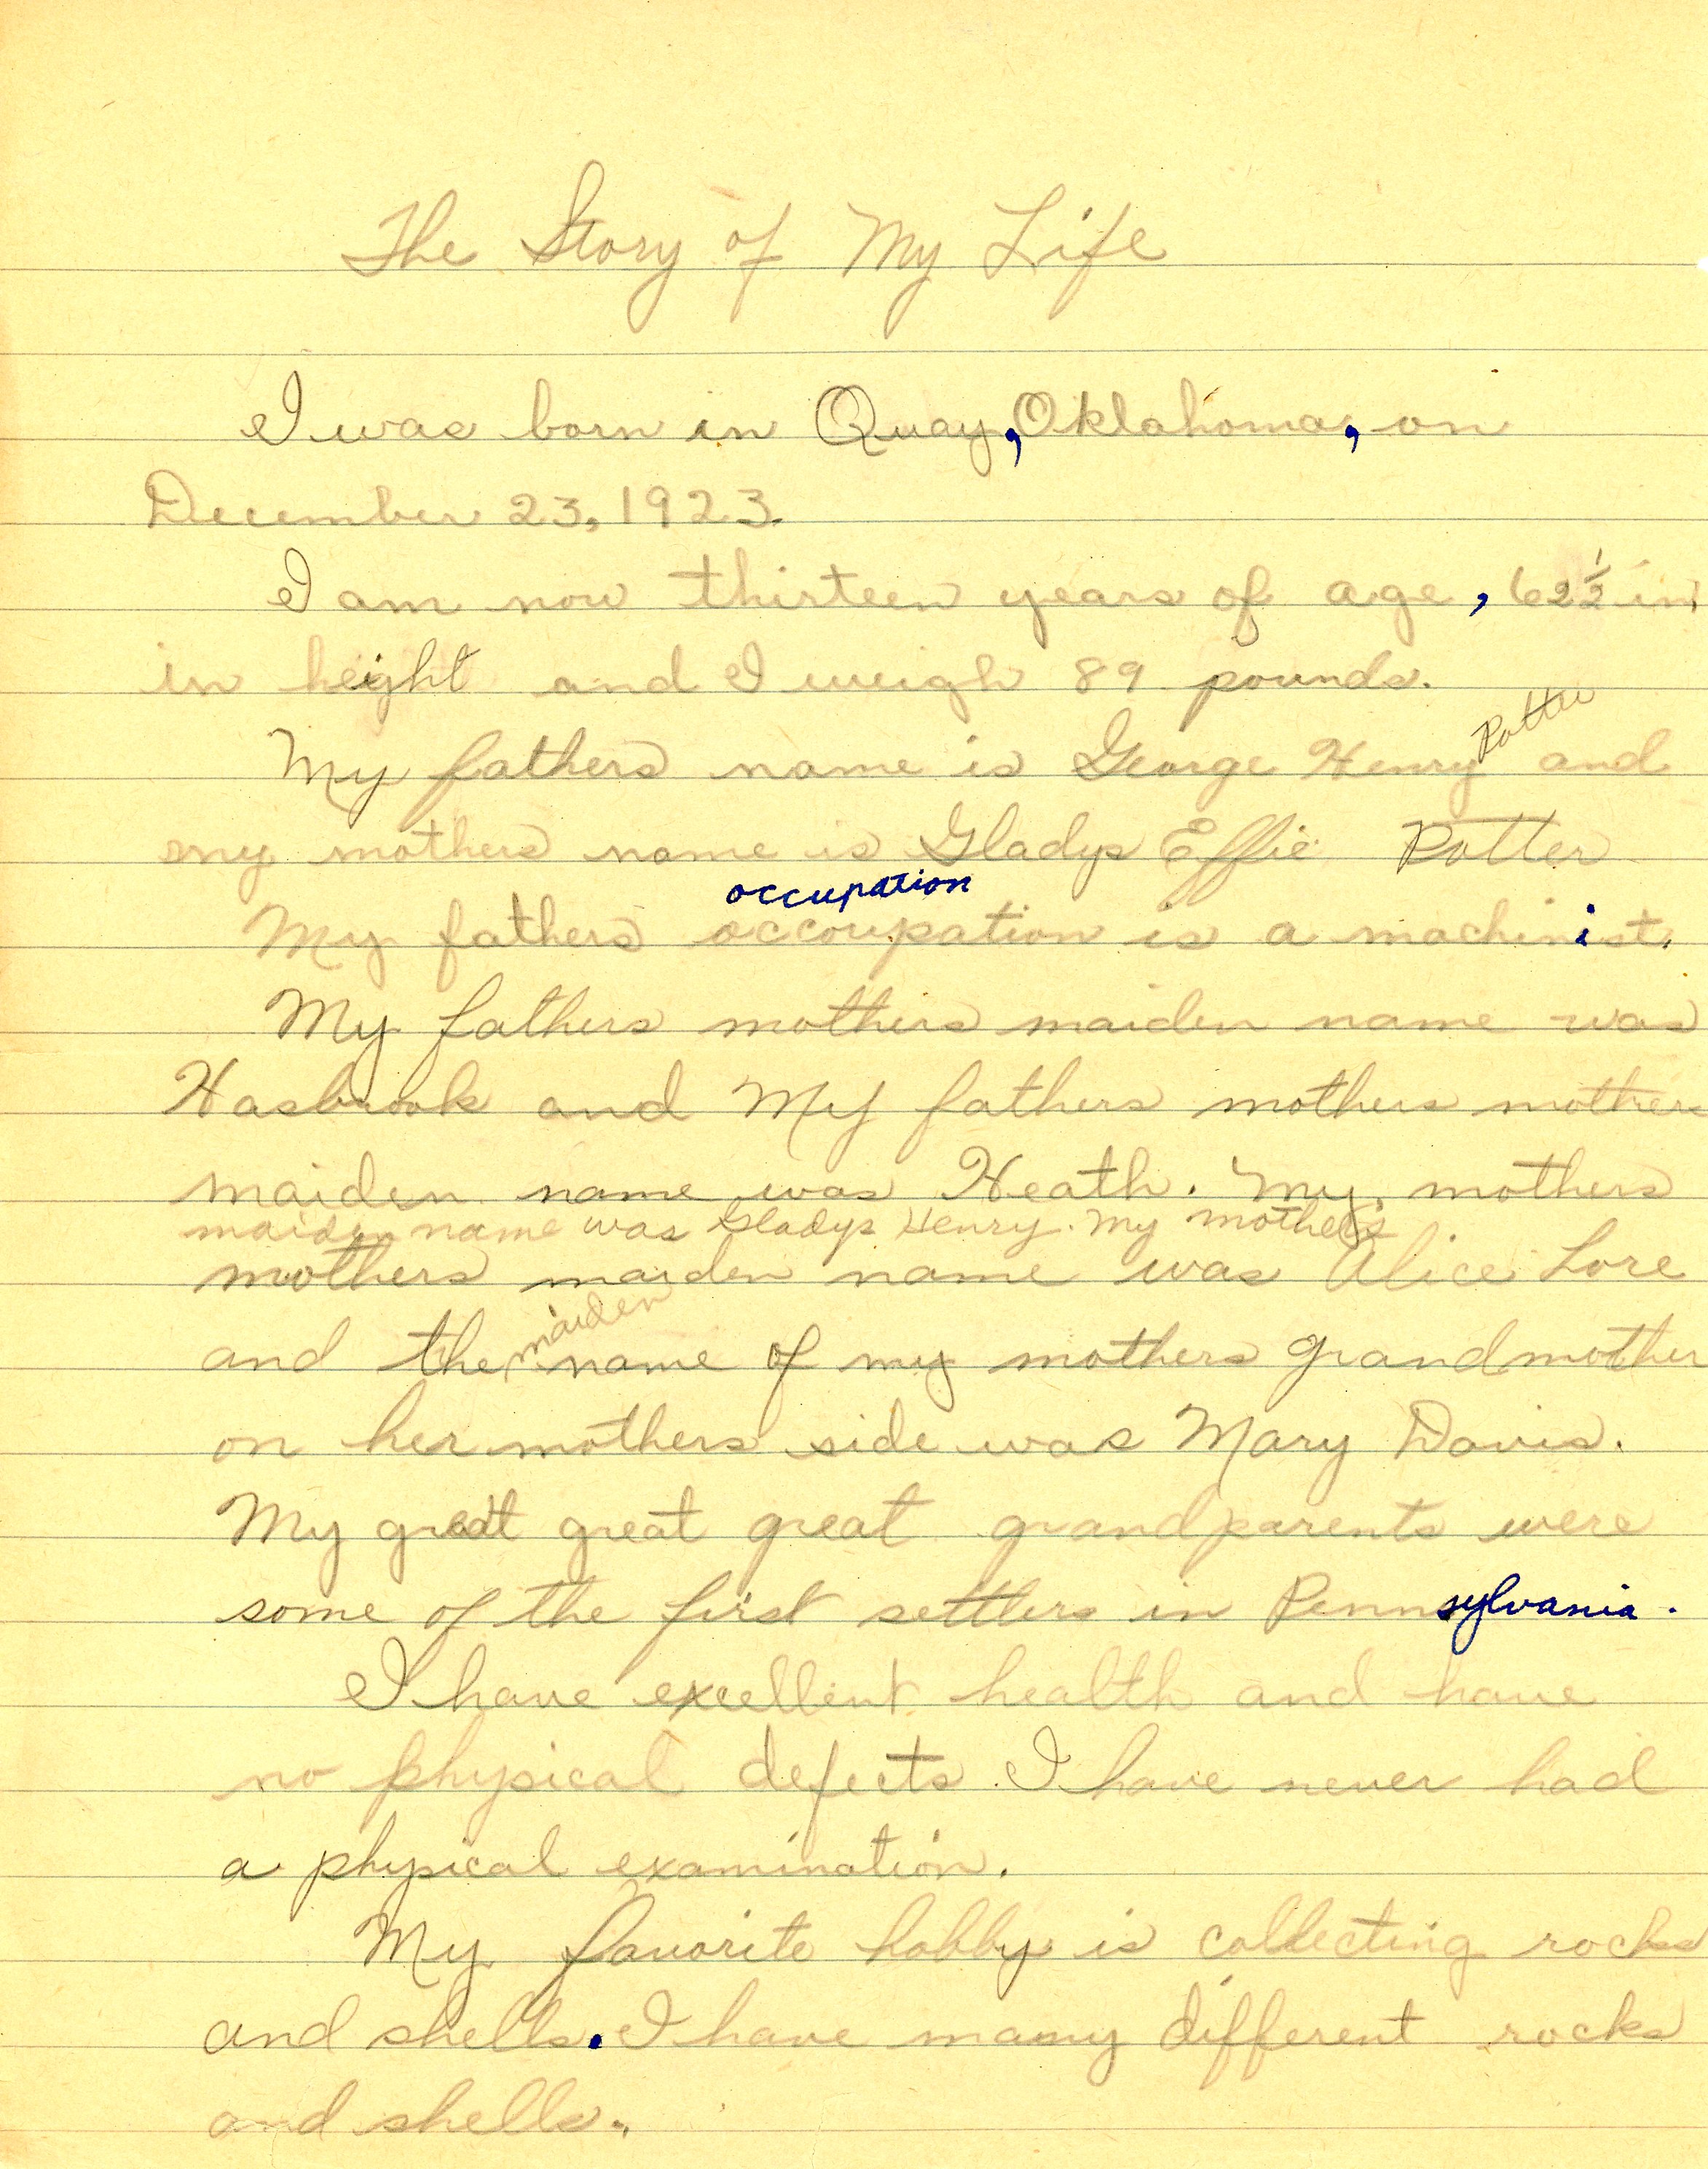 The Story of My Life
I was born in Quay, Oklahoma, on
December 23, 1923.
I am now thirteen years of age, 62½ in.
in height and I weigh 89 pounds.
Potter
My fathers name is George Henry and
my mothers name is Gladys Effie Potter
occupation
My fathers occoupation is a machinist.
My fathers mothers maiden name was
Hasbrook and My fathers mothers mothers
maiden name was Heath. My mothers
maiden name was Gladys Henry. My mother's
mothers maiden name was Alice Lore
maiden
and the name of my mothers grandmother
on her mothers side was Mary Davis.
My great great great grandparents were
some of the first settlers in Pennsylvania.
I have excellent health and have
no physical defects. I have never had
a physical examination.
My favorite hobby is collecting rocks
and shells. I have many different rocks
and shells.